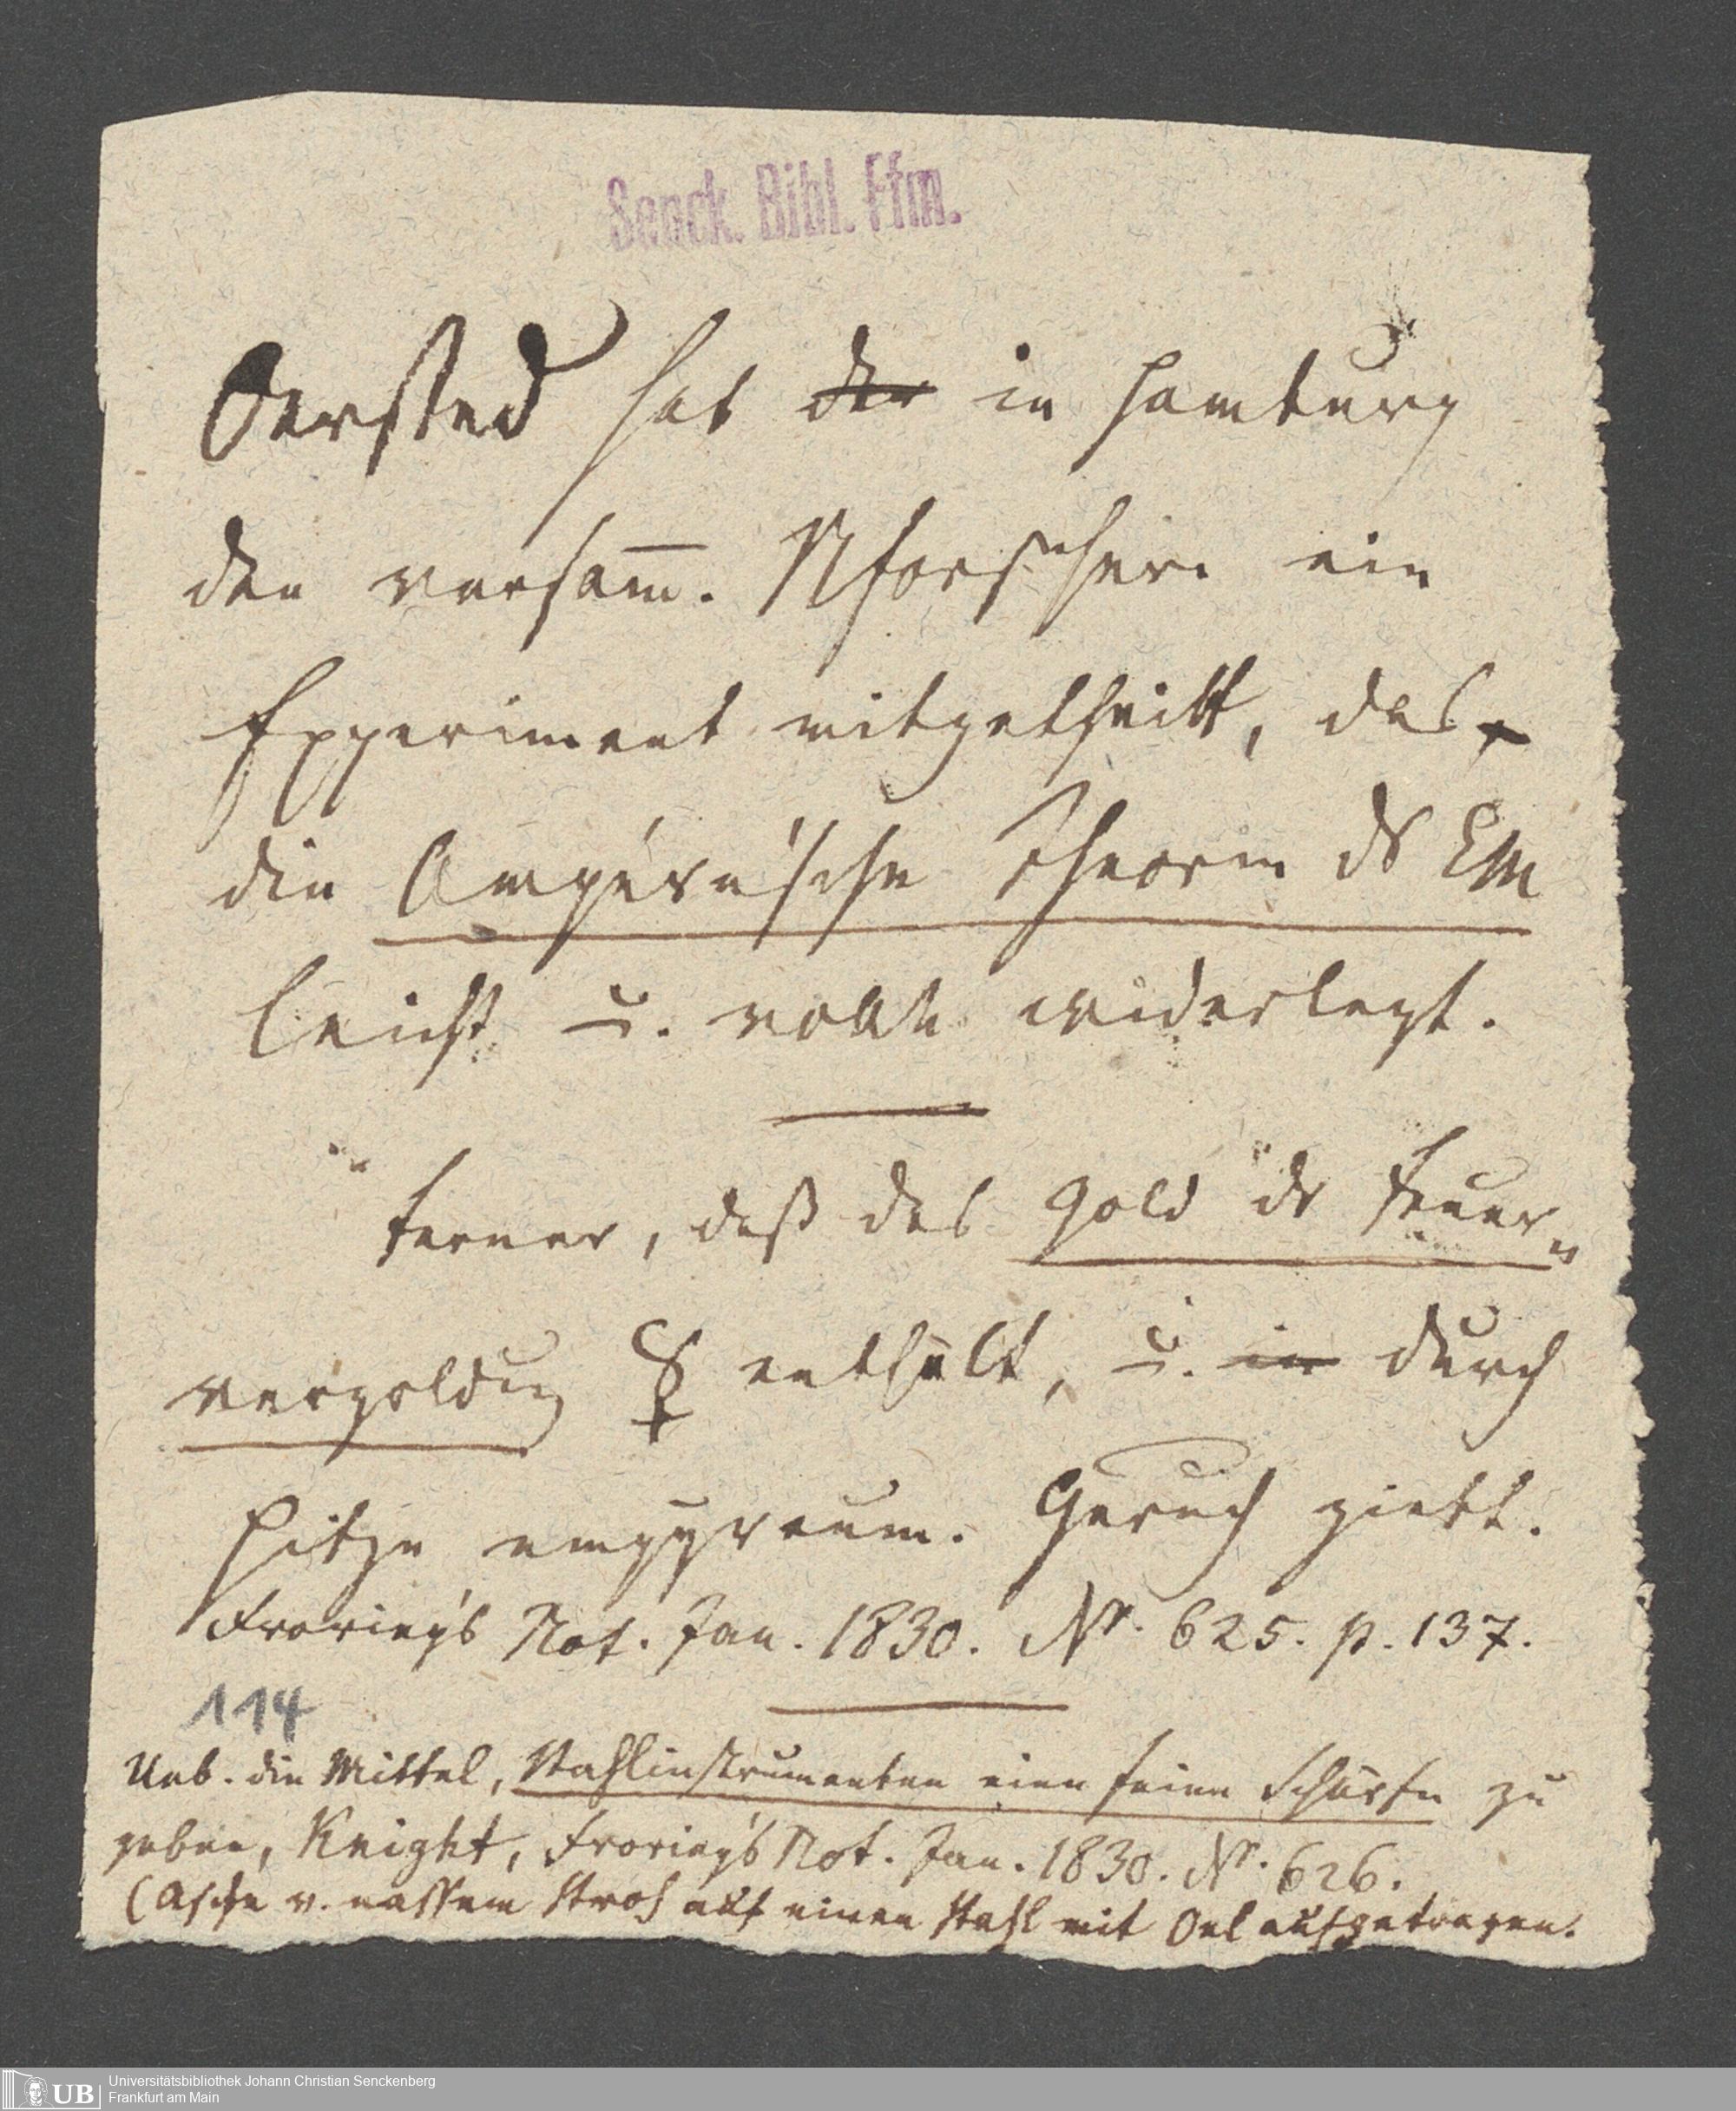 Senck. Bibl. Ffm.
Oersted hat der in Hamburg
den versam̅. Nforschern ein
Experiment mitgetheilt, das
die Ampère'sche Theorie ds EM
leicht u. vollst widerlegt.
ferner, daß das Gold dr Feuer„
vergoldung ☿ enthält, u. in durch
Hitze empyreum. Geruch giebt.
Froriep's Not. Jan. 1830. Nr. 625. p. 137.
114
Ueb. die Mittel, Stahlinstrumenten eine feine Schärfe zu
geben, Knight, Froriep's Not. Jan. 1830. Nr. 626.
(Asche v. nassem Stroh auf einen Stahl mit Oel aufgetragen.
UB Universitätsbibliothek Johann Christian Senckenberg
Frankfurt am Main